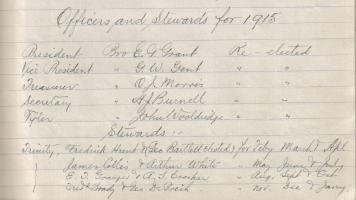 Officers and Stewards for 1915
President Bro E. G. Grant Re-elected
Vice President " G. W. Gant " "
Treasurer " O. J. Morris " "
Secretary " A. J. Burnell " "
Tyler " John Wooldridge " "
Stewards :-
Trinity. Fredrick Hunt & Geo Bartlett elected for Feby March & Apl
James Ellis & Arthur White " May June & July
E. T. & A. S. " Aug, Sept & Oct
Fred & Geo " Nov. Dec & Jany